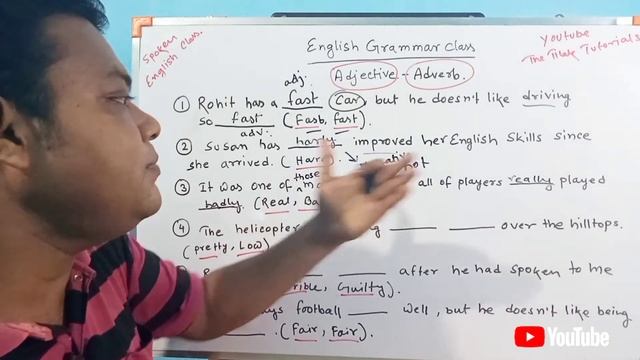 Spoken
English Class.
English Grammar Class
YouTube
The Tilak Tutorials
Adjective - Adverb.
adj.
① Rohit has a fast car, but he doesn't like driving
so fast (Fast, fast).
adv.
② Susan has hardly improved her English Skills since
she arrived. (Hard). not
those
③ It was one of all of players really played
badly. (Real,
④ The helicopter over the hilltops.
(pretty, Low)
after he had spoken to me
Guilty).
football well, but he doesn't like being
(Fair, Fair).
YouTube